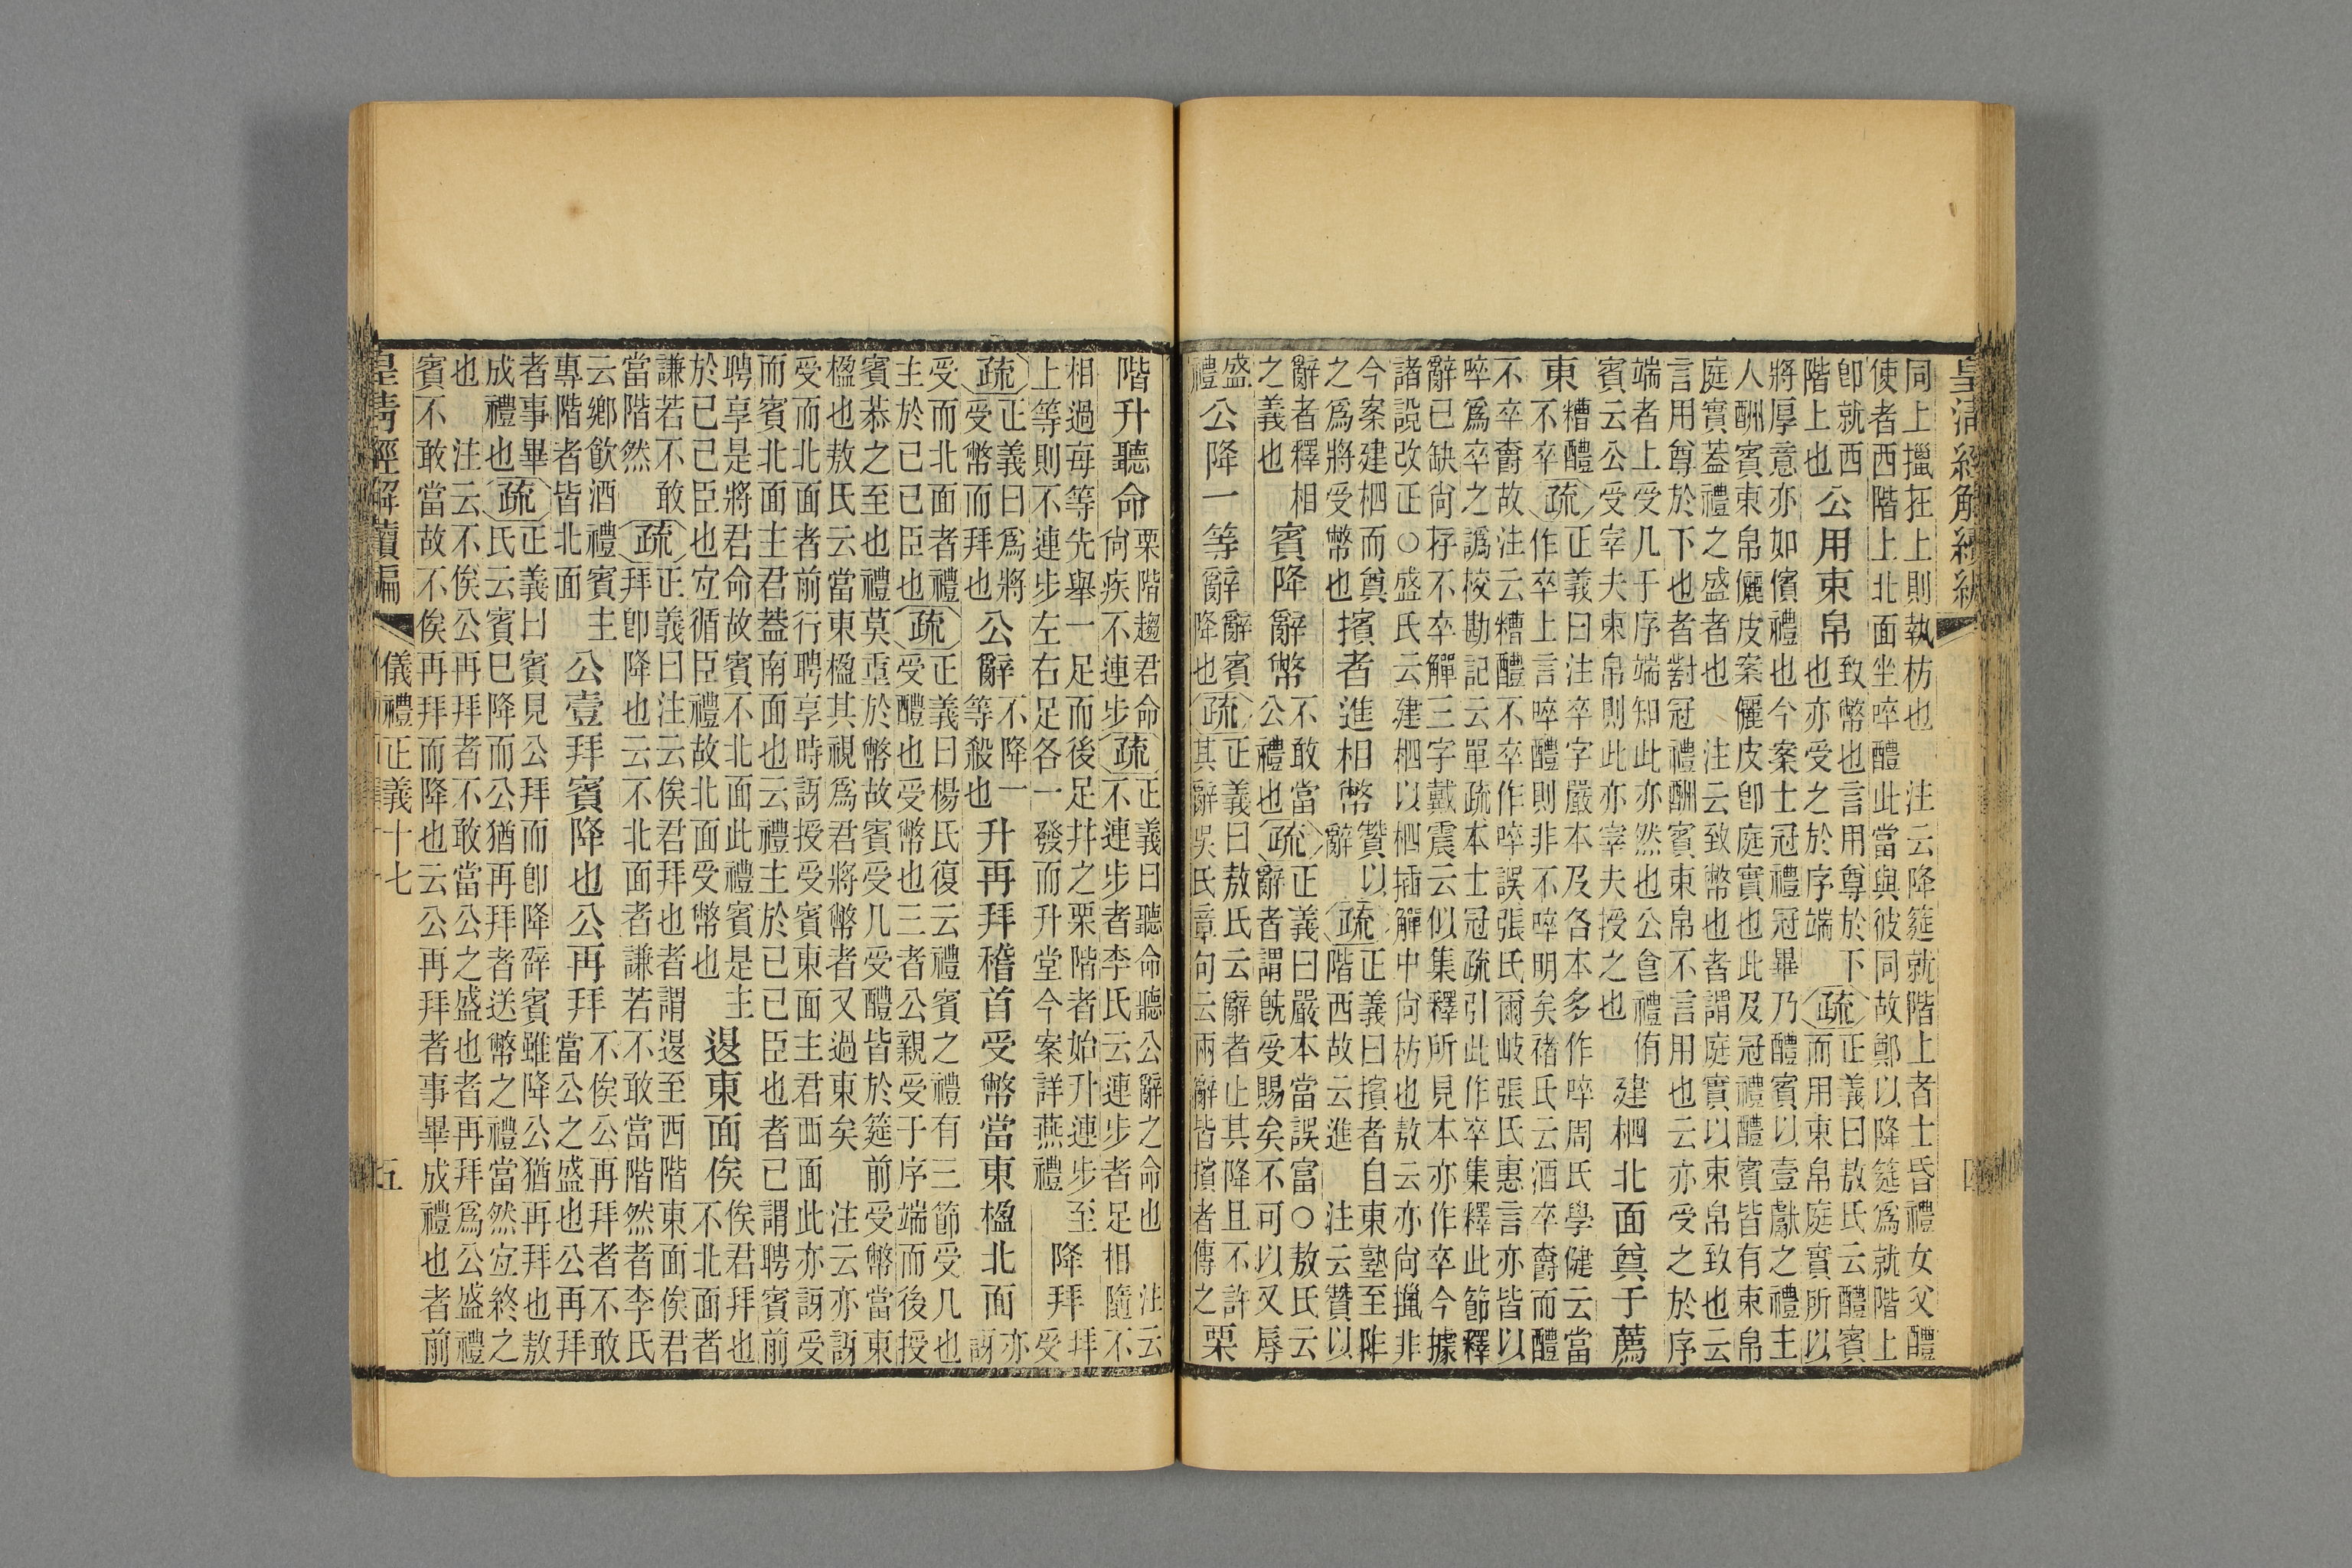 皇清經解續編
同上擸抂上則執枋也　注云降筵就階上者士昏禮女父醴
使者西階上北面坐啐醴此當與彼同故鄭以降筵爲就階上
卽就西
階上也
公用束帛
致幣也言用尊於下
也亦受之於序端
疏
正義曰敖氏云醴賓
而用束帛庭實所以
將厚意亦如儐禮也今案士冠禮冠畢乃醴賓以壹獻之禮主
人酬賓束帛儷皮案儷皮卽庭實也此及冠禮醴賓皆有束帛
庭實蓋禮之盛者也　注云致幣也者謂庭實以束帛致也云
言用尊於下也者對冠禮酬賓束帛不言用也云亦受之於序
端者上受几于序端知此亦然也公食禮侑
賓云公受宰夫束帛則此亦宰夫授之也
建柶北面奠于薦
東
糟醴
不卒
疏
正義曰注卒字嚴本及各本多作啐周氏學健云當
作卒上言啐醴則非不啐明矣禇氏云酒卒爵而醴
不卒爵故注云糟醴不卒作啐誤張氏爾岐張氏惠言亦皆以
啐爲卒之譌校勘記云單疏本士冠疏引此作卒集釋此節釋
辭已缺尙存不卒觶三字戴震云似集釋所見本亦作卒今據
諸說改正○盛氏云建柶以柶插觶中尙枋也敖云亦尙擸非
今案建柶而奠
之爲將受幣也
擯者進相幣
贊以
辭
疏
正義曰擯者自東塾至阼
階西故云進　注云贊以
辭者釋相
之義也
賓降辭幣
不敢當
公禮也
疏
正義曰嚴本當誤富○敖氏云
辭者謂旣受賜矣不可以又辱
盛
禮
公降一等辭
辭賓
降也
疏
正義曰敖氏云辭者止其降且不許
其辭吳氏章句云兩辭皆擯者傳之
栗
階升聽命
栗階趨君命
尙疾不連步
疏
正義曰聽命聽公辭之命也　注云
不連步者李氏云連步者足相隨不
相過每等先舉一足而後足幷之栗階者始升連步至
上等則不連步左右足各一發而升堂今案詳燕禮
降拜
拜
受
疏
正義曰爲將
受幣而拜也
公辭
不降一
等殺也
升再拜稽首受幣當東楹北面
亦
訝
受而北面者禮
主於已已臣也
疏
正義曰楊氏復云禮賓之禮有三節受几也
受醴也受幣也三者公親受于序端而後授
賓恭之至也禮莫重於幣故賓受几受醴皆於筵前受幣當東
楹也敖氏云當東楹其視爲君將幣者又過東矣　注云亦訝
受而北面者前行聘享時訝授受賓東面主君西面此亦訝受
而賓北面主君蓋南面也云禮主於已已臣也者已謂聘賓前
聘享是將君命故賓不北面此禮賓是主
於已已臣也宜循臣禮故北面受幣也
退東面俟
俟君拜也
不北面者
謙若不敢
當階然
疏
正義曰注云俟君拜也者謂退至西階東面俟君
拜卽降也云不北面者謙若不敢當階然者李氏
云鄉飮酒禮賓主
專階者皆北面
公壹拜賓降也公再拜
不俟公再拜者不敢
當公之盛也公再拜
者事畢
成禮也
疏
正義曰賓見公拜而卽降辟賓雖降公猶再拜也敖
氏云賓已降而公猶再拜者送幣之禮當然宜終之
也　注云不俟公再拜者不敢當公之盛也者再拜爲公盛禮
賓不敢當故不俟再拜而降也云公再拜者事畢成禮也者前
皇清經解續編
儀禮正義十七
五